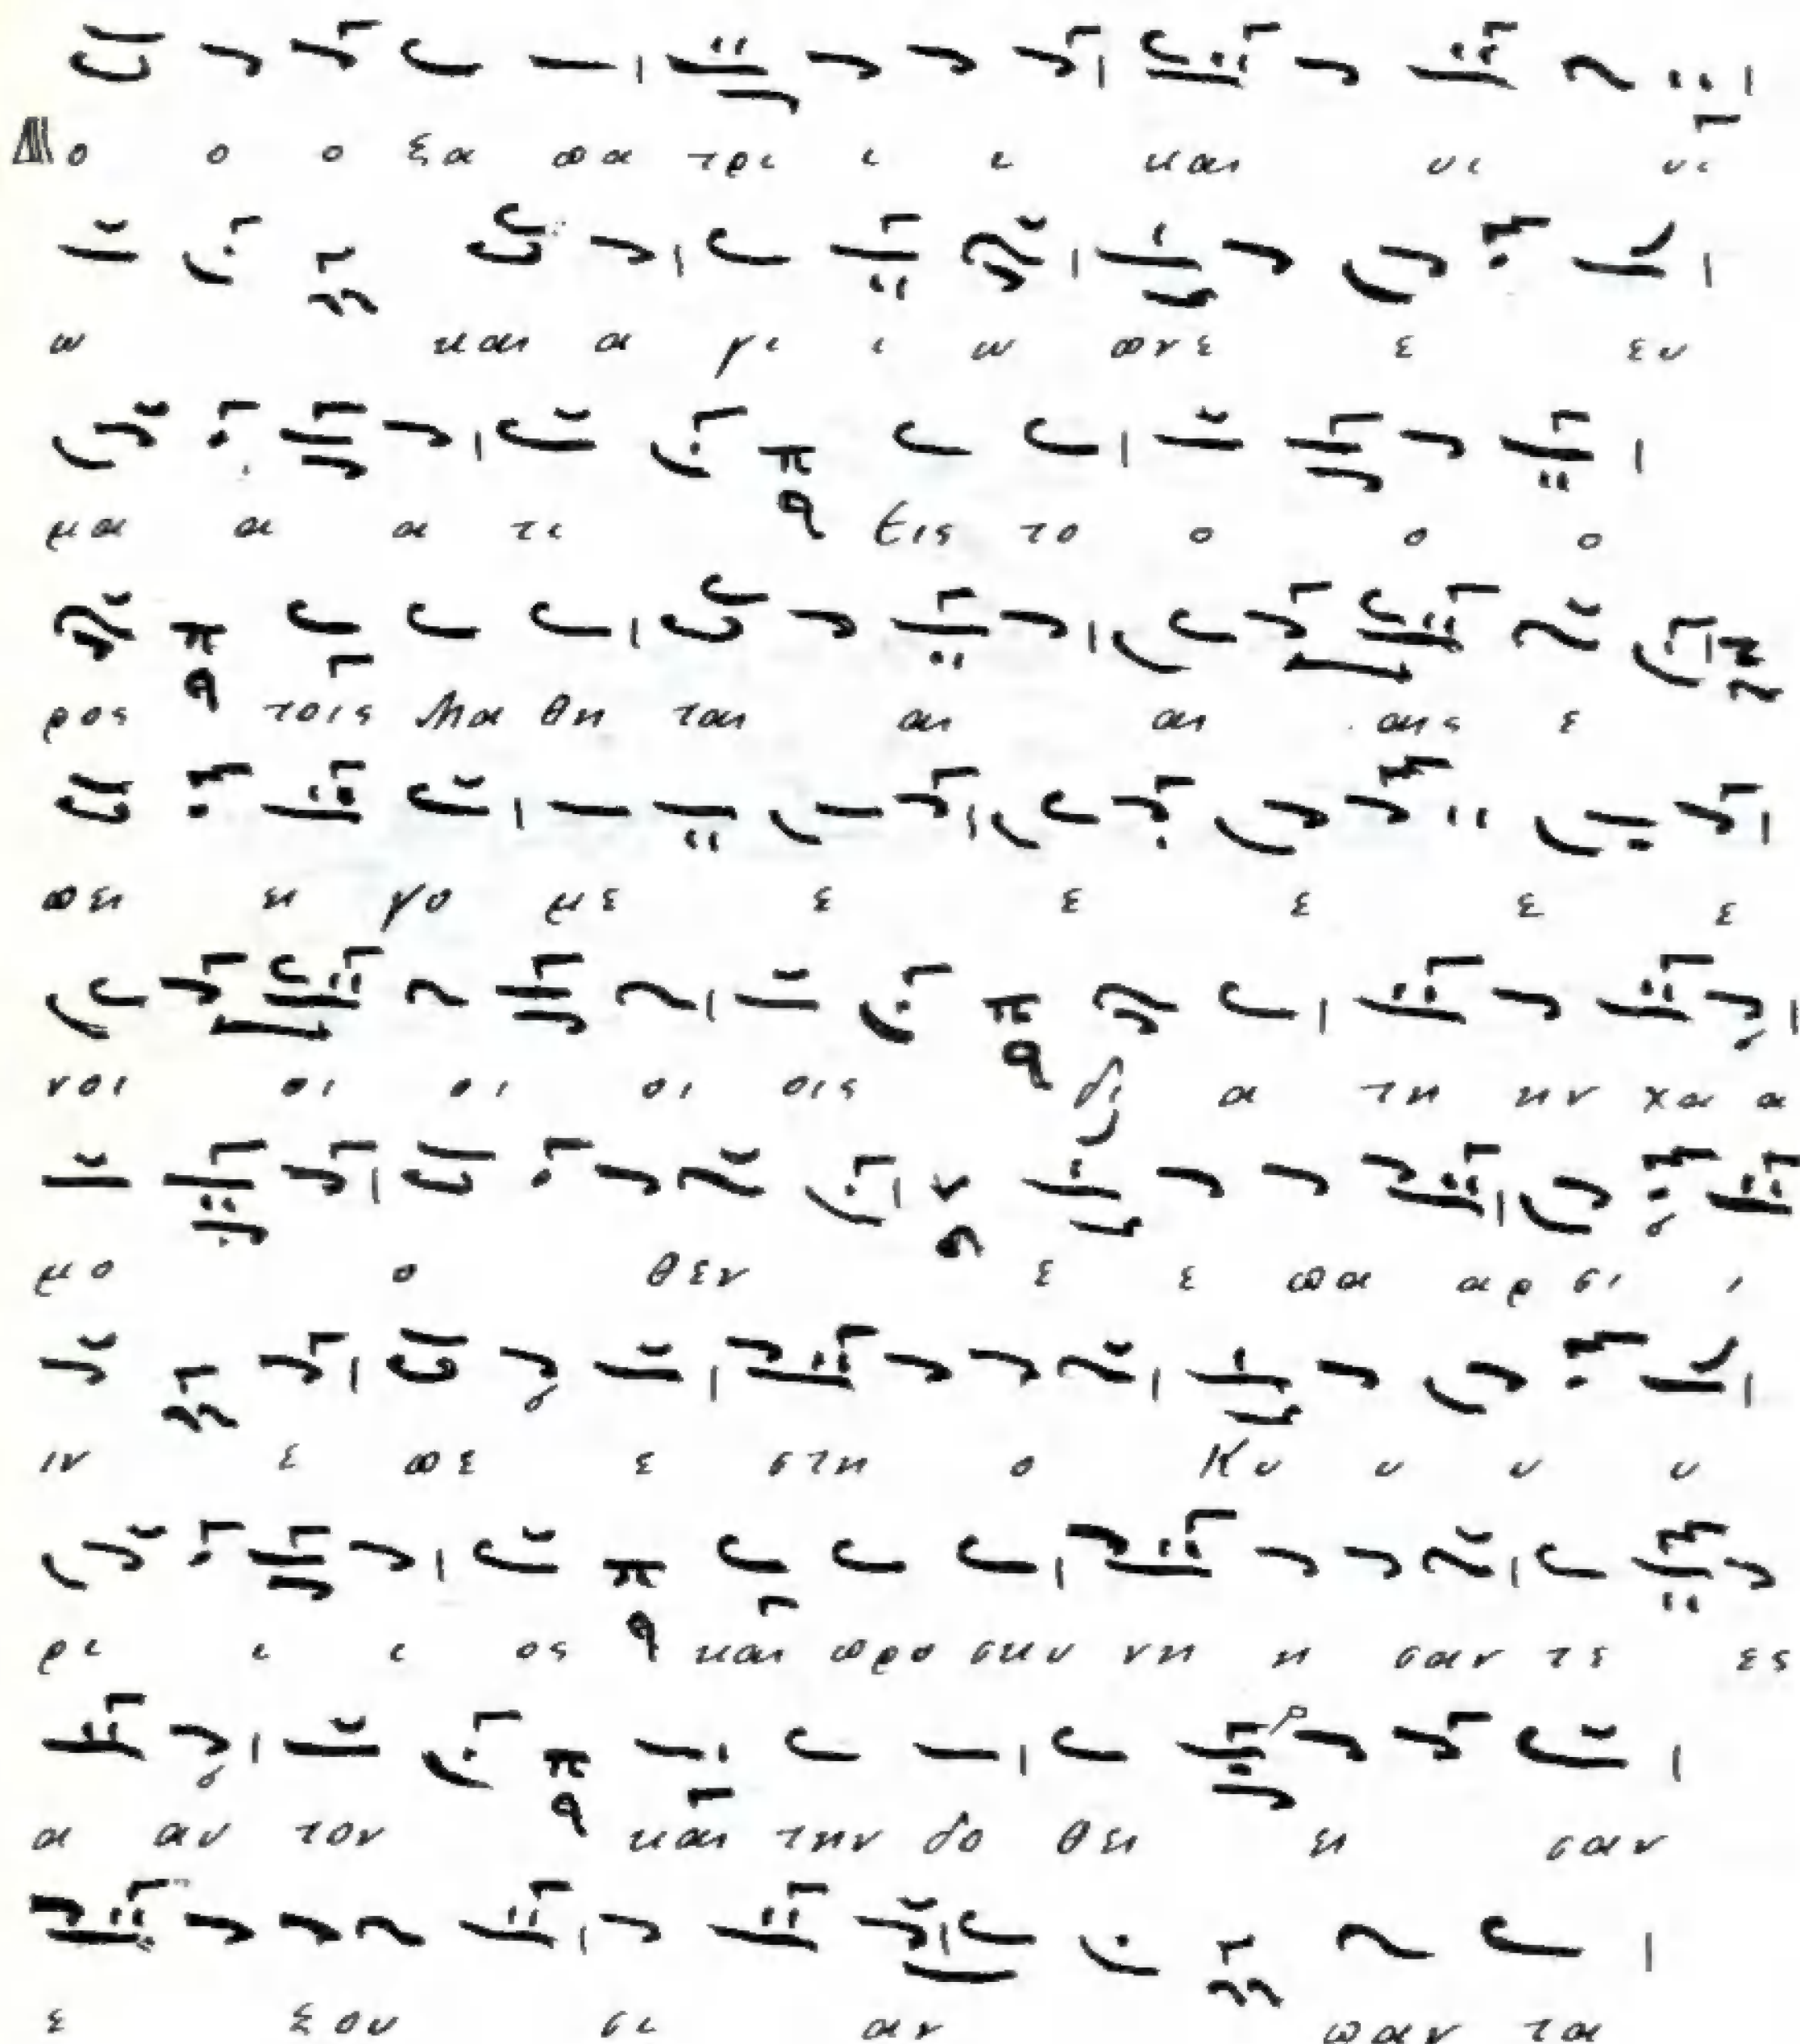 Δο ο ο ξα πα τρι ι ι και υι υι
ω και α γι ι ω πνε ε ευ
μα α α τι Εις το ο ο ο
ρος τοις Μα θη ται αι αι αις ε
πει ει γο με ε ε ε ε ε
νοι οι οι οι οις δι α τη ην χα α
μο ο θεν ε ε πα αρ σι ι
ιν ε πε ε στη ο Κυ υ υ υ
ρι ι ι ος και προ σκυ νη η σαν τε ες
α αυ τον και την δο θει ει σαν
ε ξου σι αν παν τα